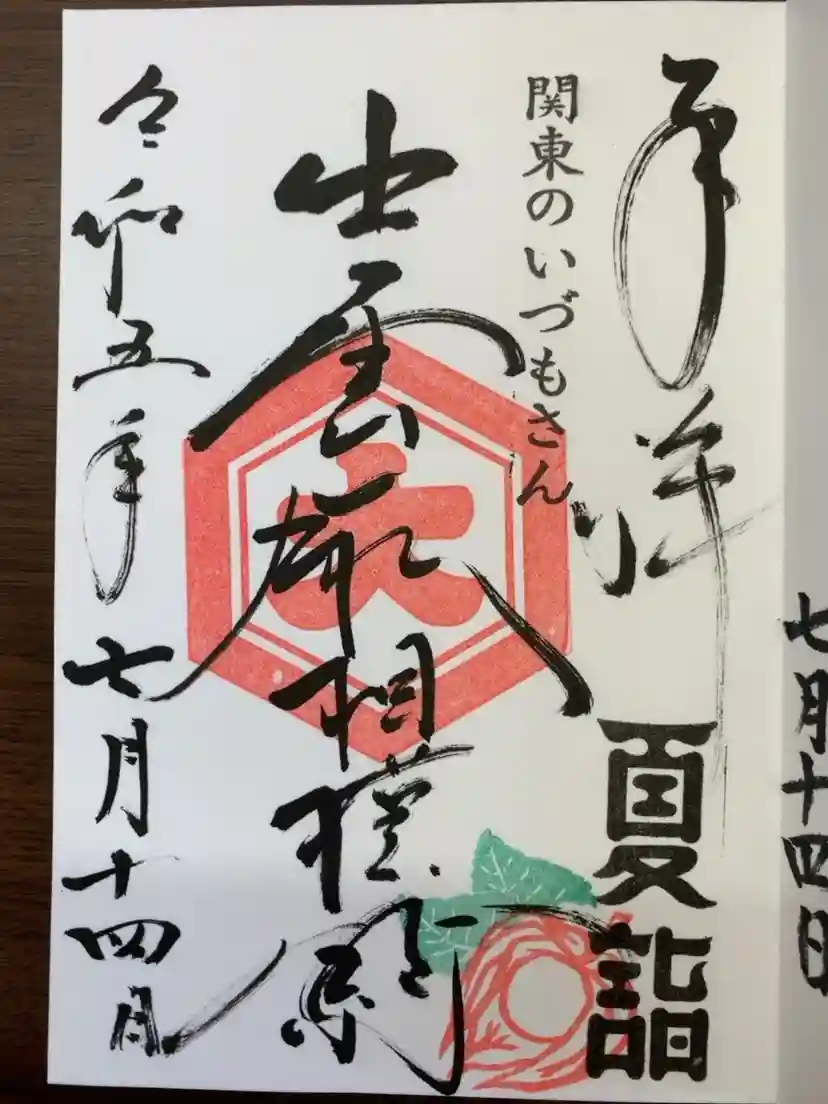 七月十四日
奉拝
夏詣
関東のいづもさん
出雲大社相模分祠
令和五年七月十四日